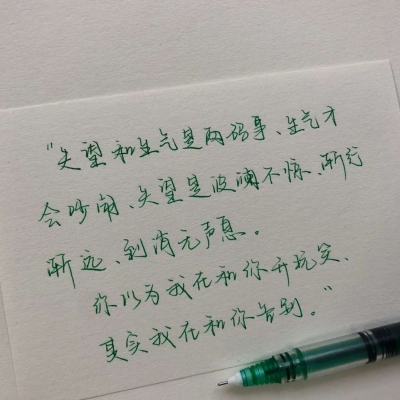 “失望和生气是两码事、生气才
会吵闹、失望是波澜不惊、渐行
渐远、到消无声息。
你以为我在和你开玩笑、
其实我在和你告别。”